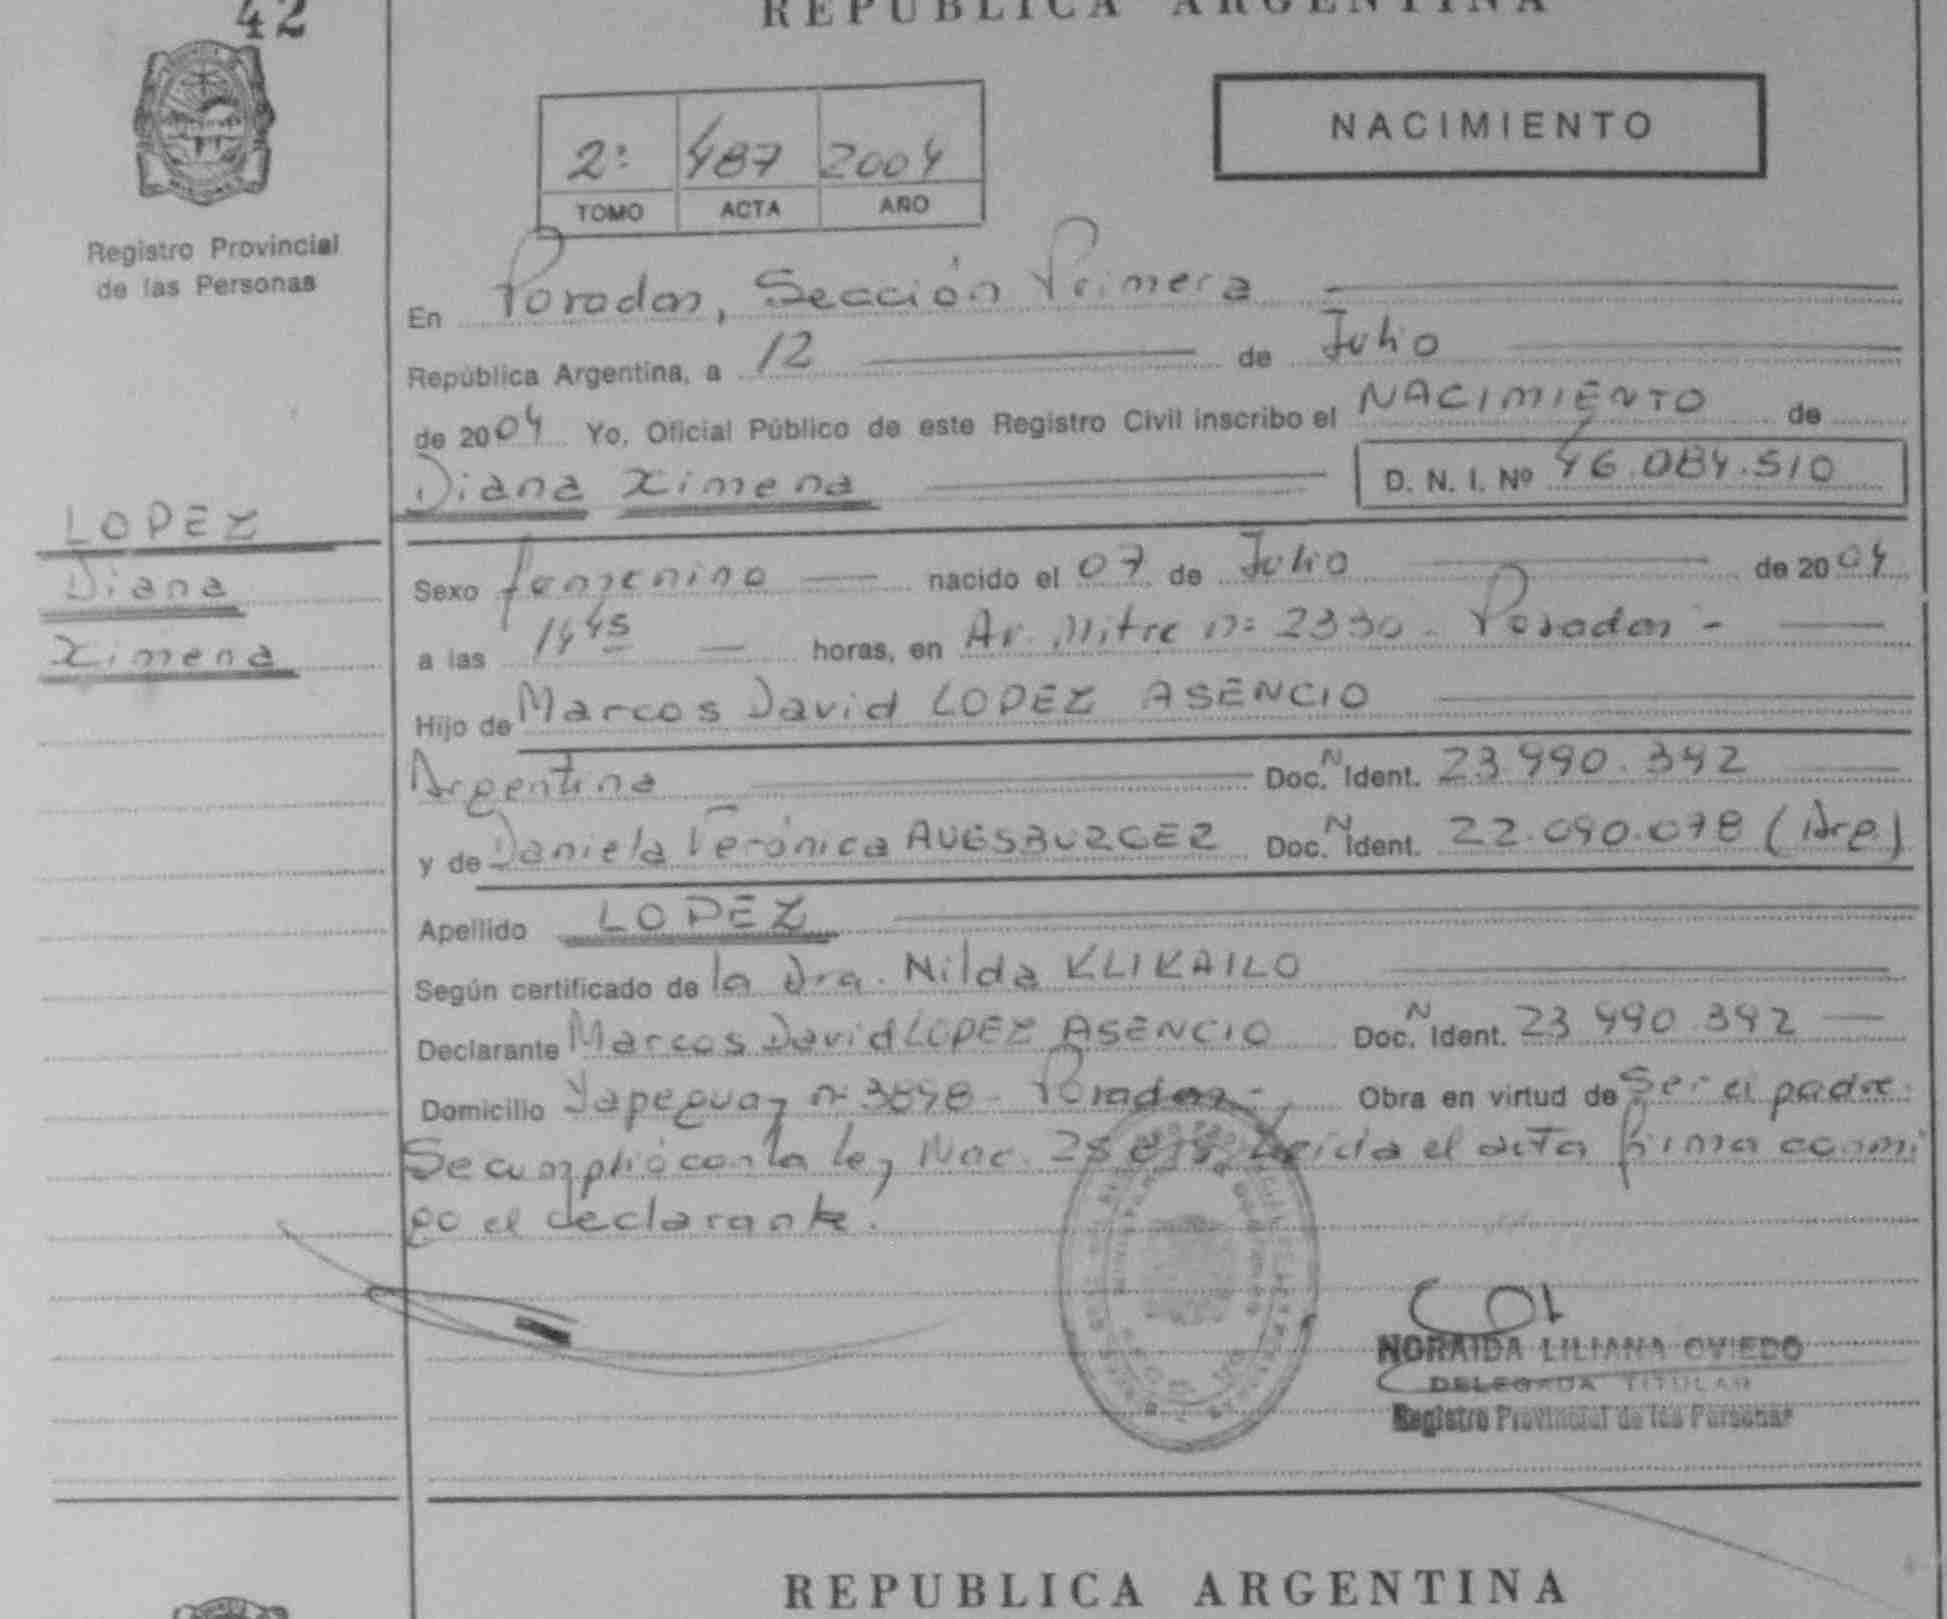 42
REPUBLICA ARGENTINA
NACIMIENTO
2º 487 2004
TOMO ACTA AÑO
Registro Provincial
de las Personas
En Posadas, Sección Primera
República Argentina, a 12 de Julio
de 2004 Yo, Oficial Público de este Registro Civil inscribo el NACIMIENTO de
Diana Ximena D. N. I. Nº 46.084.510
LOPEZ
Diana
Ximena
Sexo femenino nacido el 07 de Julio de 2004
a las 14 45 horas, en Av. Mitre nº 2330 - Posadas -
Hijo de Marcos David LOPEZ ASENCIO
Argentina Doc. N Ident. 23.990.342
y de Daniela Verónica AUGSBURGER Doc. N Ident. 22.090.078 (Arg)
Apellido LOPEZ
Según certificado de la Dra. Nilda KLIKAILO
Declarante Marcos David LOPEZ ASENCIO Doc. N Ident. 23.990.342
Domicilio Yapeyuay nº - Posadas - Obra en virtud de Ser el padre.
Se cumplió con la ley Nac. Leída el acta firma conmi
go el declarante.
NORAIDA LILIANA OVIEDO
DELEGADA TITULAR
Registro Provincial de las Personas
REPUBLICA ARGENTINA